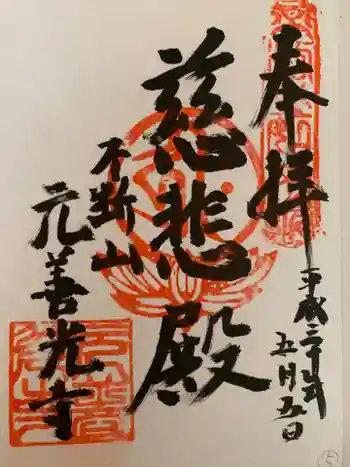 奉拝
平成三十年
五月五日
慈悲殿
不断山
元善光寺
5